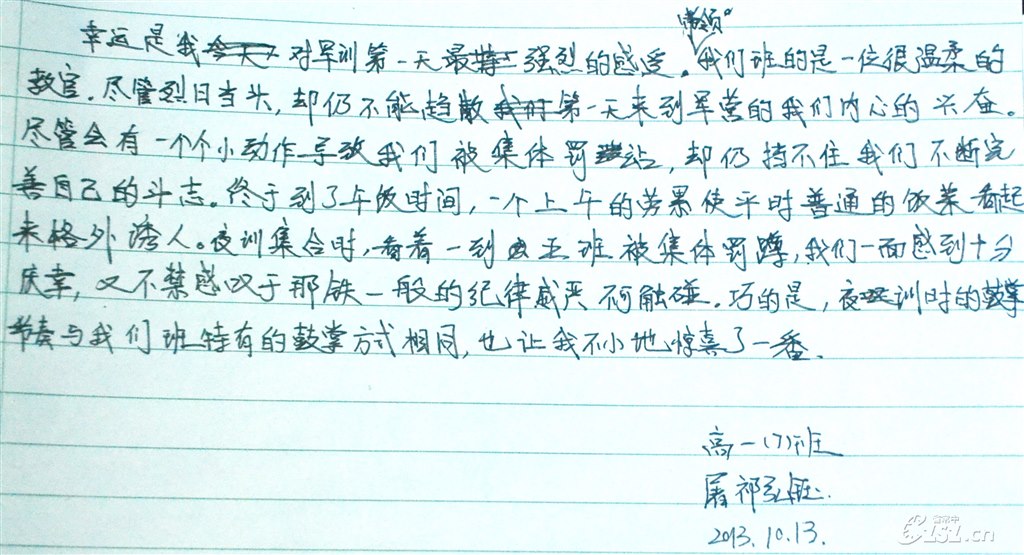 带领
幸运是我对军训第一天最强烈的感受。我们班的是一位很温柔的
教官。尽管烈日当头,却仍不能趋散第一天来到军营的我们内心的兴奋。
尽管会有一个个小动作导致我们被集体罚站,却仍挡不住我们不断完
善自己的斗志。终于到了午饭时间,一个上午的劳累使平时普通的饭菜看起
来格外诱人。夜训集合时,看着一到五班被集体罚蹲,我们一面感到十分
庆幸,又不禁感叹于那铁一般的纪律威严不可触碰。巧的是,夜训时的鼓掌
节奏与我们班特有的鼓掌方式相同,也让我不小地惊喜了一番。
高一(7)班
屠祁
2013.10.13.